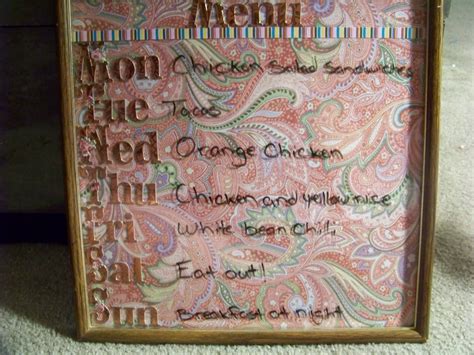 Menu
Mon Chicken Salad Sandwiches
Tue Tacos
Wed Orange Chicken
Thu Chicken and yellow rice
Fri White Bean Chili
Sat Eat out!
Sun Breakfast at night